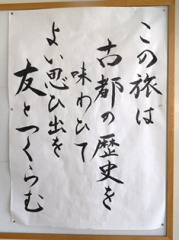 この旅は
古都の歴史を
味わひて
よい思ひ出を
友とつくらむ